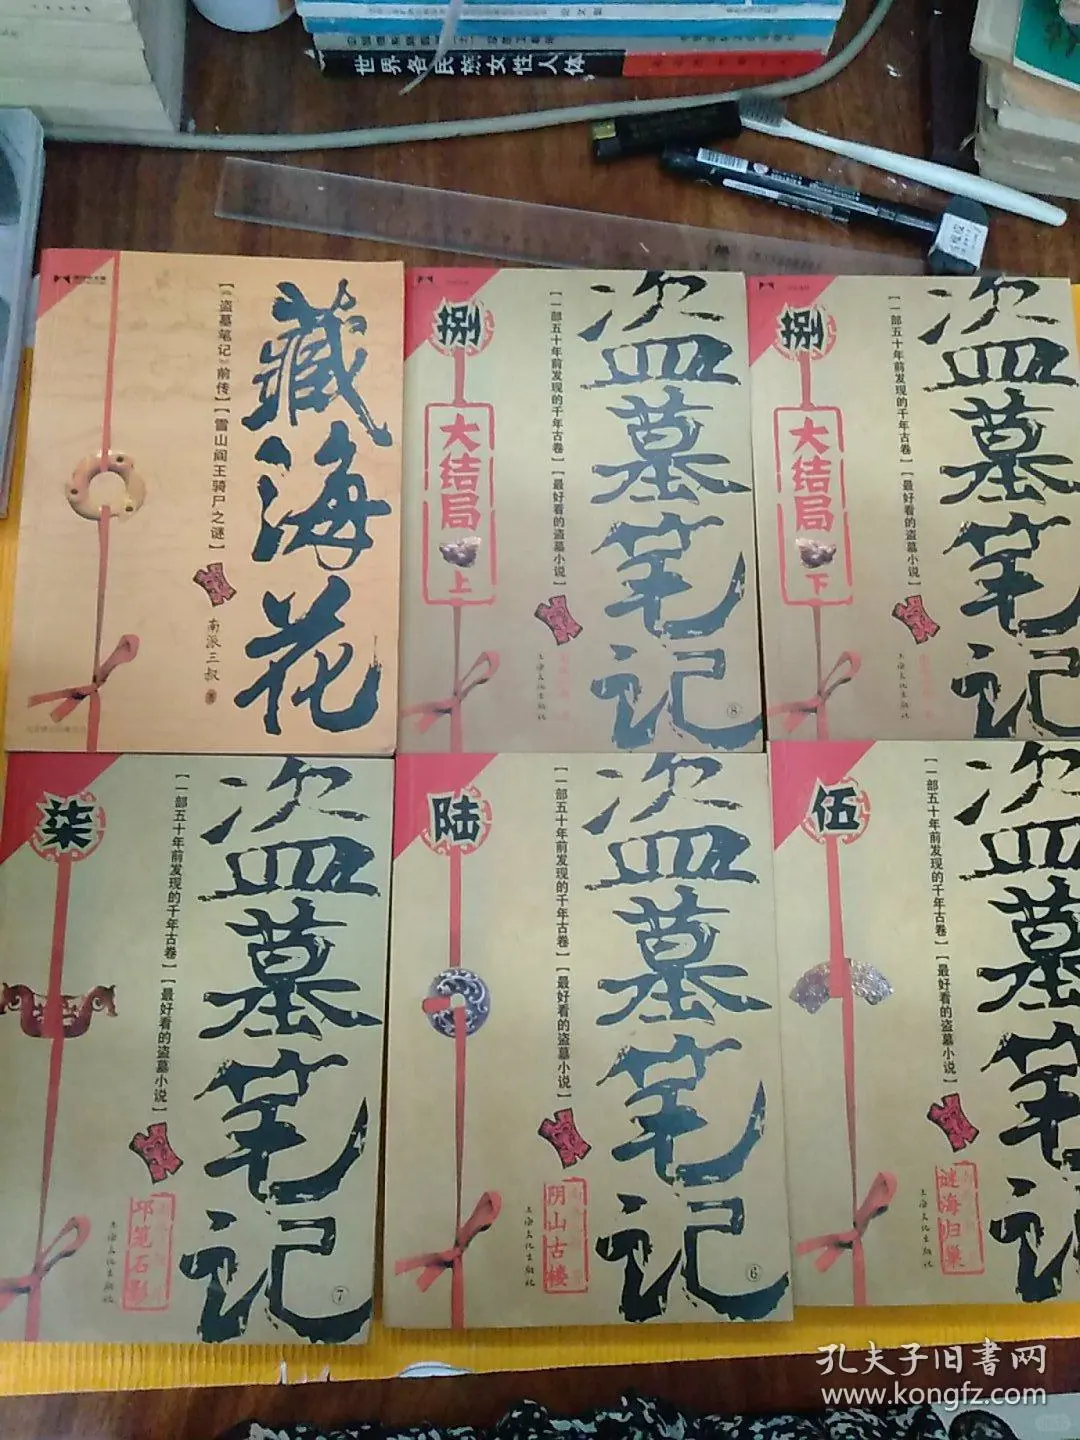 世界各民族女性人体
藏海花
【《盗墓笔记》前传】【雪山阎王骑尸之谜】
南派三叔 著
盗墓笔记
捌
大结局
上
【一部五十年前发现的千年古卷】【最好看的盗墓小说】
上海文化出版社
⑧
盗墓笔记
捌
大结局
下
【一部五十年前发现的千年古卷】【最好看的盗墓小说】
上海文化出版社
盗墓笔记
柒
【一部五十年前发现的千年古卷】【最好看的盗墓小说】
邛笼石影
上海文化出版社
⑦
盗墓笔记
陆
【一部五十年前发现的千年古卷】【最好看的盗墓小说】
阴山古楼
上海文化出版社
⑥
盗墓笔记
伍
【一部五十年前发现的千年古卷】【最好看的盗墓小说】
谜海归巢
上海文化出版社
孔夫子旧書网
www.kongfz.com